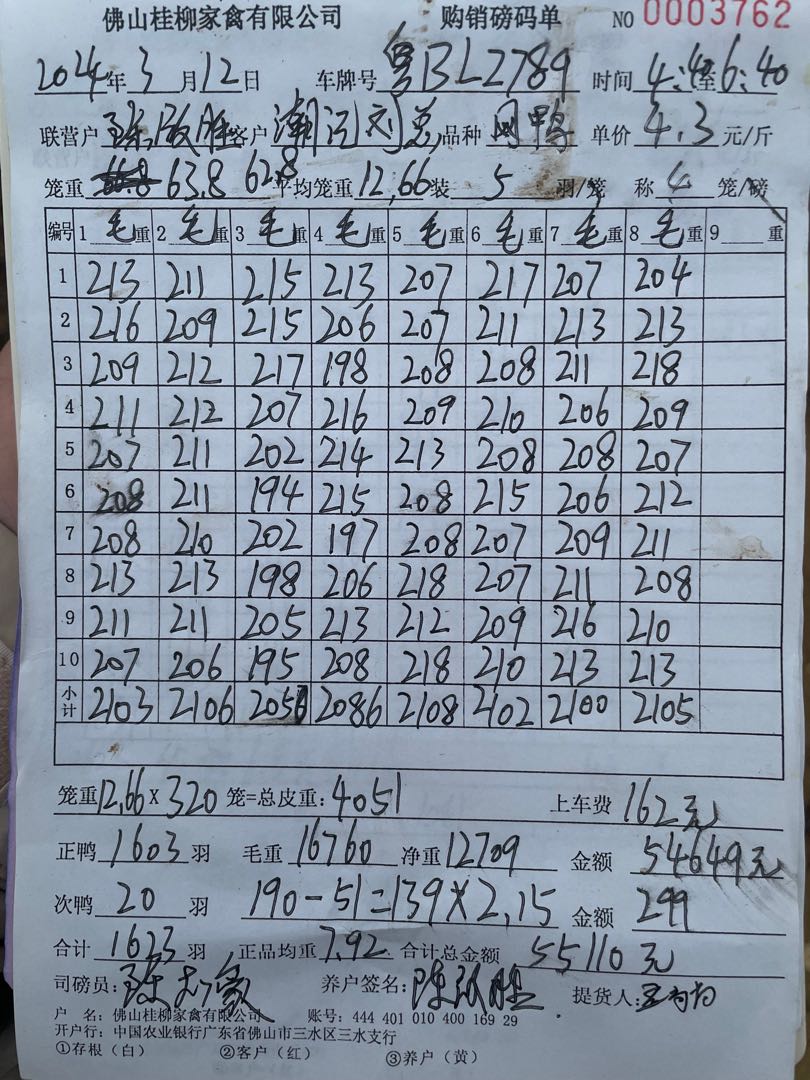 佛山桂柳家禽有限公司 购销磅码单 NO 0003762
2024年3月12日 车牌号 粤BL2789 时间 4:40至6:40
联营户 陈 胜 客户 潮江刘总 品种 网鸭 单价 4.3 元/斤
笼重 66.8 63.8 62.8 平均笼重 12.66 装 5 羽/笼 称 4 笼/磅
编号 1 毛重 2 毛重 3 毛重 4 毛重 5 毛重 6 毛重 7 毛重 8 毛重 9 重
1 213 211 215 213 207 217 207 204
2 216 209 215 206 207 211 213 213
3 209 212 217 198 208 208 211 218
4 211 212 207 216 209 210 206 209
5 207 211 202 214 213 208 208 207
6 208 211 194 215 208 215 206 212
7 208 210 202 197 208 207 209 211
8 213 213 198 206 218 207 211 208
9 211 211 205 213 212 209 216 210
10 207 206 195 208 218 210 213 213
小计 2103 2106 2050 2086 2108 2102 2100 2105
笼重 12.66 x 320 笼=总皮重: 4051 上车费 162元
正鸭 1603 羽 毛重 16760 净重 12709 金额 54649元
次鸭 20 羽 190-51=139x2.15 金额 299
合计 1623 羽 正品均重 7.92 合计总金额 55110元
司磅员: 陈 养户签名: 陈 胜 提货人:
户 名: 佛山桂柳家禽有限公司 账号: 444 401 010 400 169 29
开户行: 中国农业银行广东省佛山市三水区三水支行
①存根(白) ②客户(红) ③养户(黄)